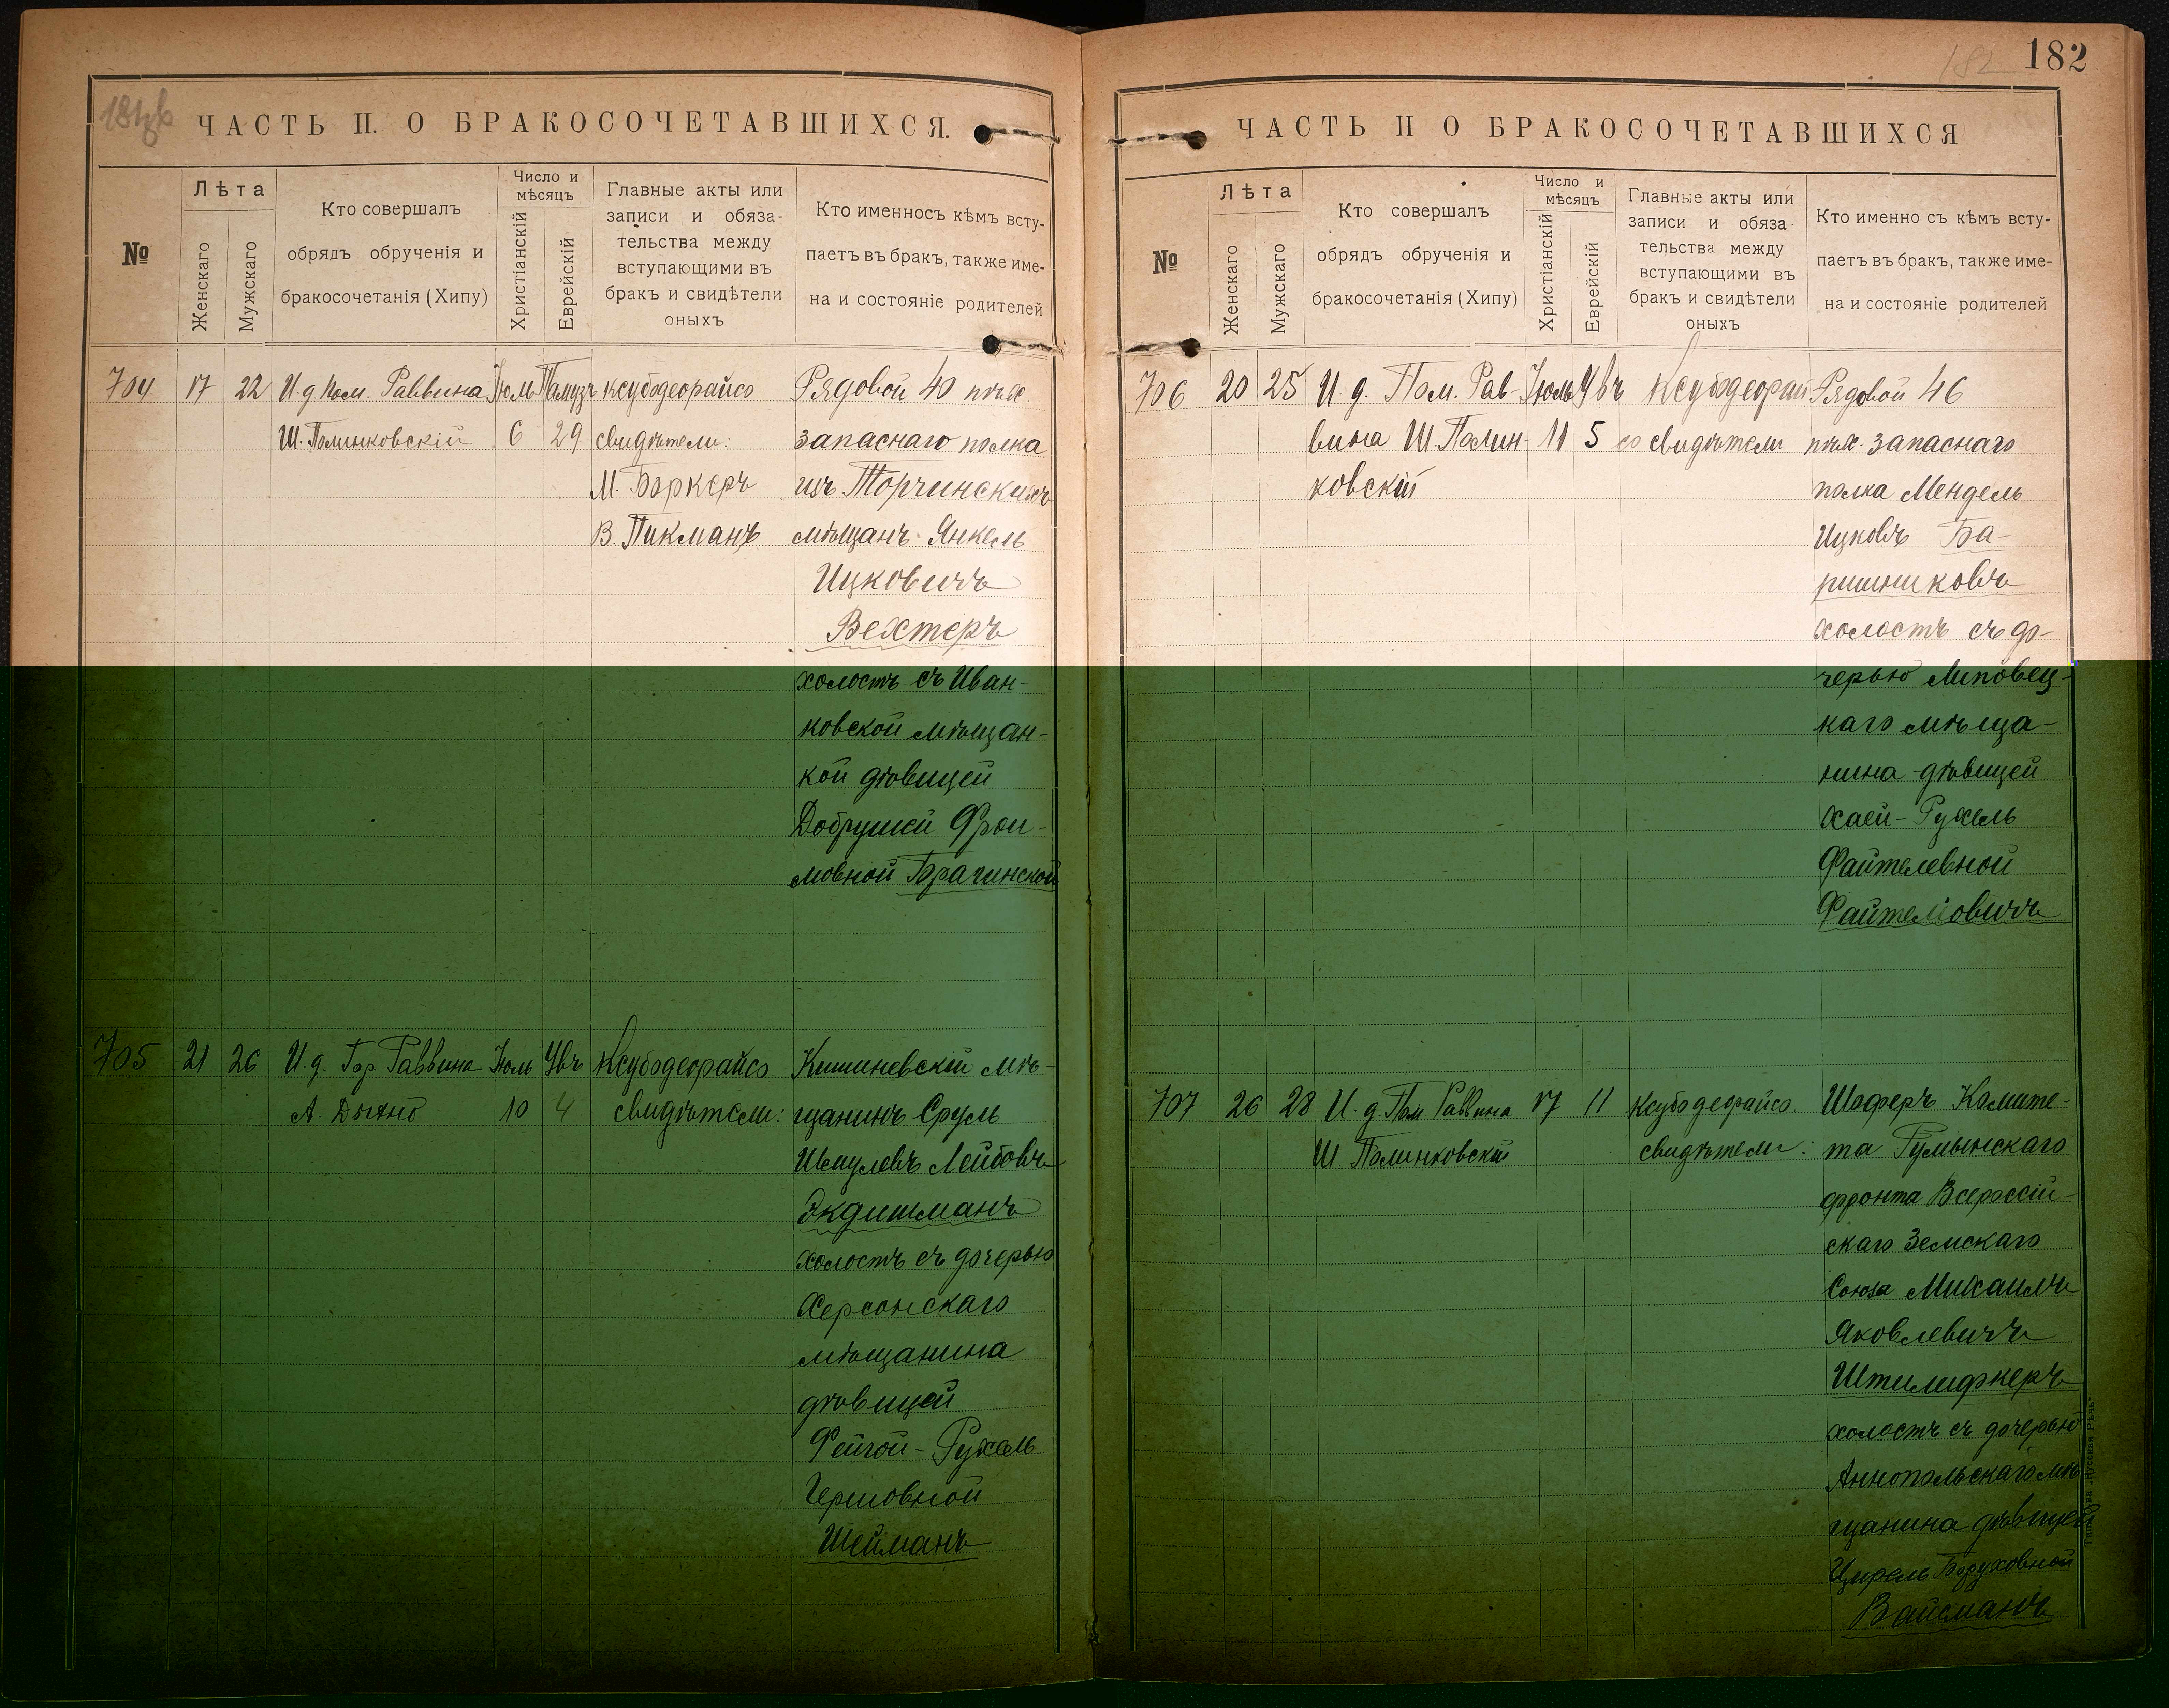 182
182
ЧАСТЬ II. О БРАКОСОЧЕТАВШИХСЯ.
№
Лѣта
Женскаго
Мужскаго
Кто совершалъ
обрядъ обрученія и
бракосочетанія (Хипу)
Число и
мѣсяцъ
Христіанскій
Еврейскій
Главные акты или
записи и обяза-
тельства между
вступающими въ
бракъ и свидѣтели
оныхъ
Кто именносъ кѣмъ всту-
паетъ въ бракъ, также име-
на и состояніе родителей
704 17 22 И. д. Пом. Раввина Іюль Тамузъ ксубодеорайсо Рядовой 40 пѣх.
Ш. Полинковскій 6 29 свидѣтели: запаснаго полка
М. Боркеръ изъ Торчинскихъ
В. Пикманъ мѣщанъ Янкель
Ицковичъ
Вехтеръ
холостъ съ Иван-
ковской мѣщан-
кой дѣвицей
Добрушей Фрои-
мовной Брагинской
705 21 26 И. д. Гор. Раввина Іюль Увъ Ксубодеорайсо Кишиневскій мѣ-
А. Дыхно 10 4 свидѣтели: щанинъ Сруль
Шмулевъ Лейбовъ
Экдишманъ
холостъ съ дочерью
Херсонскаго
мѣщанина
дѣвицей
Фейгой-Рухель
Гершовной
Шейманъ
ЧАСТЬ II О БРАКОСОЧЕТАВШИХСЯ
№
Лѣта
Женскаго
Мужскаго
Кто совершалъ
обрядъ обрученія и
бракосочетанія (Хипу)
Число и
мѣсяцъ
Христіанскій
Еврейскій
Главные акты или
записи и обяза
тельства между
вступающими въ
бракъ и свидѣтели
оныхъ
Кто именно съ кѣмъ всту-
паетъ въ бракъ, также име-
на и состояніе родителей
706 20 25 И. д. Пом. Рав- Іюль Увъ Ксубодеорай Рядовой 46
вина Ш. Полин- 11 5 со свидѣтели пѣх. запаснаго
ковскій полка Мендель
Ицковъ Ба-
ришниковъ
холостъ съ до-
черью Липовец-
каго мѣща-
нина дѣвицей
Хаей-Рухель
Файтелевной
Файтеліовичъ
707 26 28 И. д. Пом. Раввина 17 11 ксубодеорайсо. Шоферъ Комите-
Ш. Полинковскій свидѣтели: та Румынскаго
фронта Всероссій-
скаго Земскаго
Союза Михаилъ
Яковлевичъ
Штилифкеръ
холостъ съ дочерью
Аннопольскаго мѣ
щанина дѣвицей
Цирель Боруховной
Вайсманъ